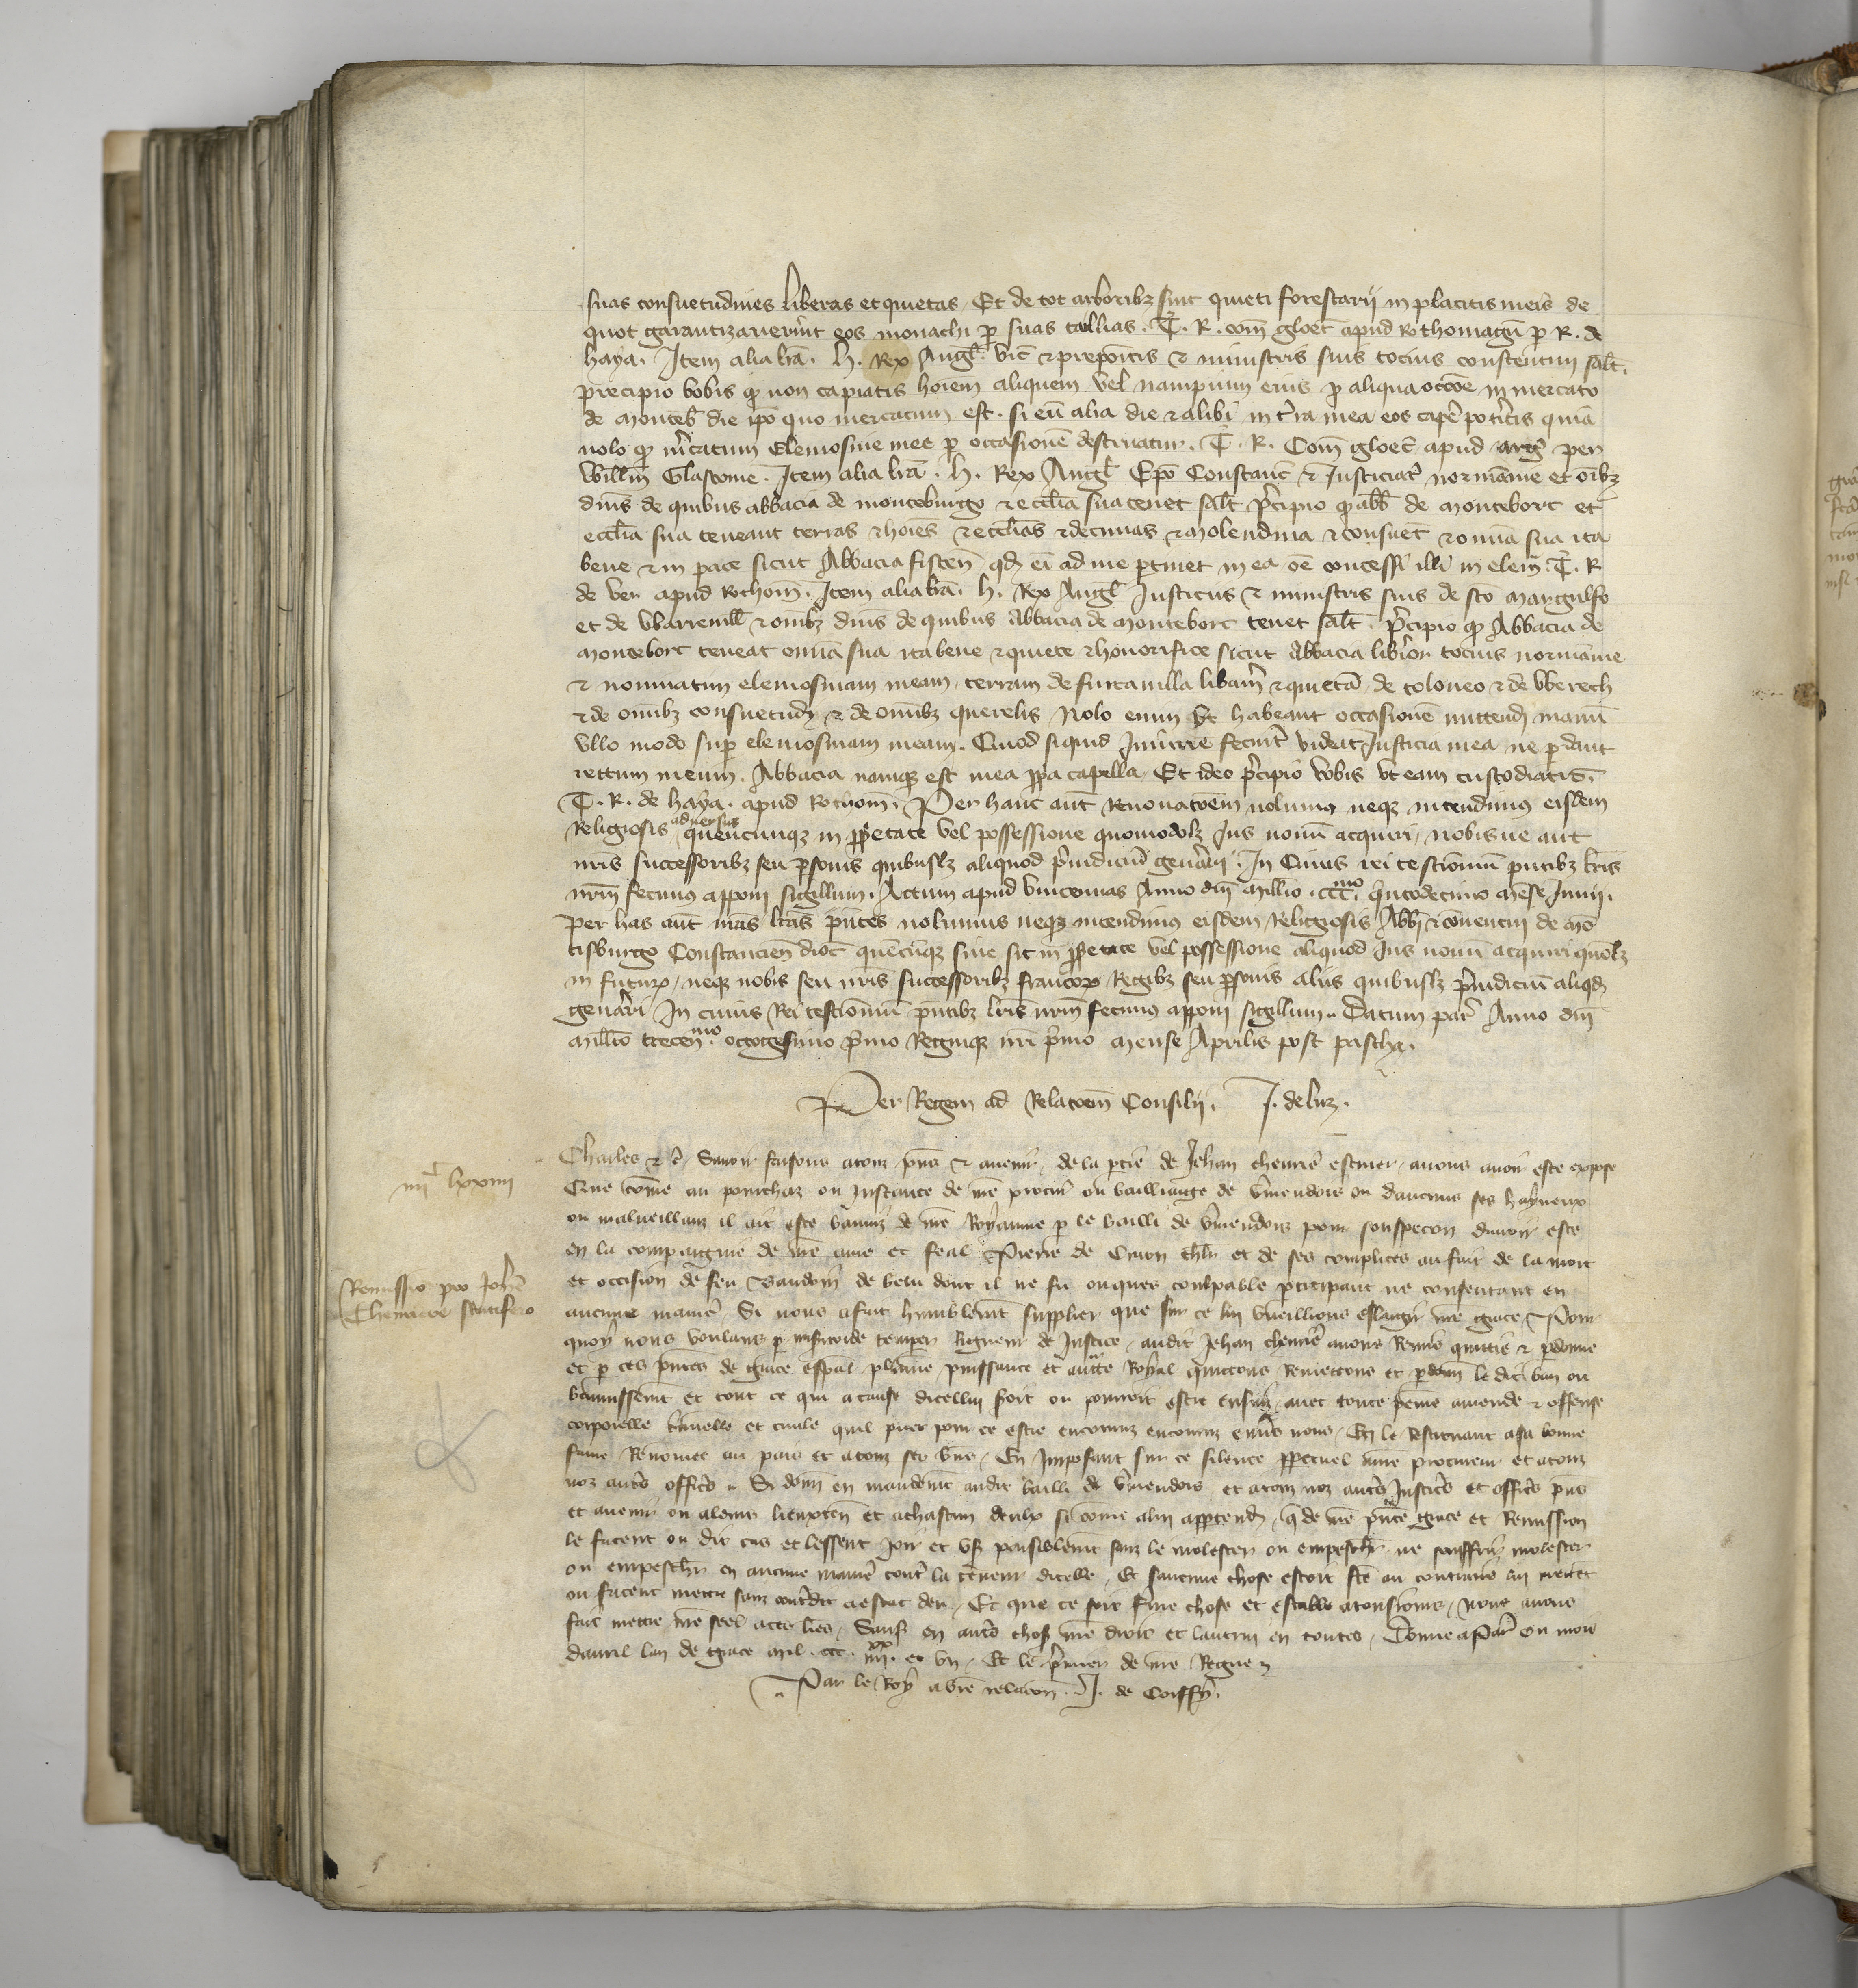 suas consuetudines liberas et quietas. Et de tot arboribz sint quieti forestarii in placitis meis de
quot garantizaverint eos monachi p suas tallias. T. R. com gloec apud Rothomagu p R. de
haya. Item alia lra. h. Rex Angl vic & prepositis & ministris suis tocius constentini salt.
precipio vobis q non capiatis hoiem aliquem vel nampnum eius p aliqua occoe in mercato
de monteb die ipo quo mercatum est. si eu alia die & alibi in tra mea eos cape potitis quia
nolo q mcatum elemosine mee p occasione destruatur. T. R. Com gloec apud arg per
Willm Glastonie. Item alia lra. h. Rex Angl Epo Constanc & Iusticiar normanie et oibz
dnis de quibus abbacia de monteburgo & ecclia sua tenet salt pcipio q abb de montebort et
ecclia sua teneant terras & hoies & ecclias & decimas & molendina & consuet & omia sua ita
bene & in pace sicut Abbacia fiscen qd ei ad me ptinet in ea oe concessi illi in elem. T. R
de ver apud Rothom. Item alia lra. h. Rex Angl Iusticiis & ministris suis de sco marculfo
et de Varrevill & omibz dnis de quibus Abbacia de montebort tenet salt. pcipio q Abbacia de
montebort teneat omia sua ita bene & quiete & honorifice sicut Abbacia libior tocius normanie
& nominatim elemosinam meam. terram de furcavilla libam & quieta de toloneo & de verech
& de omibz consuetud & de omibz querelis Nolo enim ut habeant occasione mittend manu
ullo modo sup elemosinam meam. Quod siquid Iniurie fecint videat Iusticia mea ne pdant
rectum meum. Abbacia namq est mea ppa capella. Et ideo pcipio vobis ut eam custodiatis.
T. R. de haya. apud Rothom. Per hanc aut renovacoem nolumus neqz intendimus eisdem
Religiosis adversus quencunqz in ppetate vel possessione quomodolz Ius novu acquiri, nobis ne aut
nris successoribz seu psonis quibuslz aliquod piudiciu genari. In Cuius rei testioniu pntibz lris
nrm fecimus apponi sigillum. Actum apud Vincennas Anno dni millio . CCCmo quitodecimo mese Iunii.
Per has aut nras lras pntes nolumus neqz intendimus eisdem Religiosis Abbi & conventui de mo
tisburgo Constancien dioc quecuqz sive sit in ppetate vel possessione aliquod Ius novu acquiri quolz
in futur, neqz nobis seu nris successoribz francor Regibz seu psonis aliis quibuslz piudiciu aliqd
genari In cuius Rei testioniu pntibz lris nrm fecimus apponi sigillum. Datum par Anno dni
Millio trecenmo. octogesimo pmo Regniqz nri pmo mense Aprilis post pascha.
Per Regem ad Relacoem Consilii. J. de luz.
iiiic lxxiiii
Charles & c Savoir faisons a touz pns & avenir, de la ptie de Jehan chevrie escuier, avons avoir este expose
Que come au pourchaz ou instance de nre procur ou bailliage de Vmendois ou daucuns ses hayneux
ou malveillans il ait este banniz de nre Royaume p le bailli de Vmendois pour souspecon davoir este
en la compaignie de nre ame et feal Pierre de Craon chlr et de ses complices au fait de la mort
et occision de feu Baudoin de belu dont il ne fu onques coulpable pticipant ne consentant en
Remissio pro Johe
Chevriere scutifero
aucune maniere. Si nous a fait humblemt supplier que sur ce lui vueillions eslargir nre grace. Pour
quoy nous voulans p misicorde temper Rigueur de Iustice, audit Jehan chevrie avons Remis quittie & pdonne
et p ces pntes de grace espal plaine puissance et auttte Royal quittons Remettons et pdonn le dit ban ou
bannissemt et tout ce qui a cause dicellui soit ou pourroit estre ensuiz, avec toute peine amende & offense
corporelle criminelle et civile quil puet pour ce estre encouruz encouruz envs nous. En le Restituant a sa bonne
fame Renomee au pais et a touz ses biens. En Imposant sur ce silence ppetuel a nre procureur et a touz
noz auts officrs. Si donn en mandemt audit bailli de Vmendois et a touz noz auts Iusticrs et officrs pns
et avenir ou a leurs lieuxten et a chascun deulx si come a lui apptend, q de nre pnte grace et Remission
le facent ou dit cas et lessent joir et us paisiblemt sanz le molester ou empeschr ne souffrir molester
ou empeschr en aucune manie cont la teneur dicelle. Et saucune chose estoit fte au contraire lui mettet
ou facent mettre sanz contdit a estat deu. Et que ce soit ferme chose et estable a tousiours, nous avons
fait mettre nre seel a ces lres. Sauf en auts chos nre droit et lautrui en toutes. Donne a Par ou mois
davril lan de grace mil . ccc . iiiixx. et un. Et le pmier de nre Regne
Par le Roy a vre relacon. J. de Coiffy.